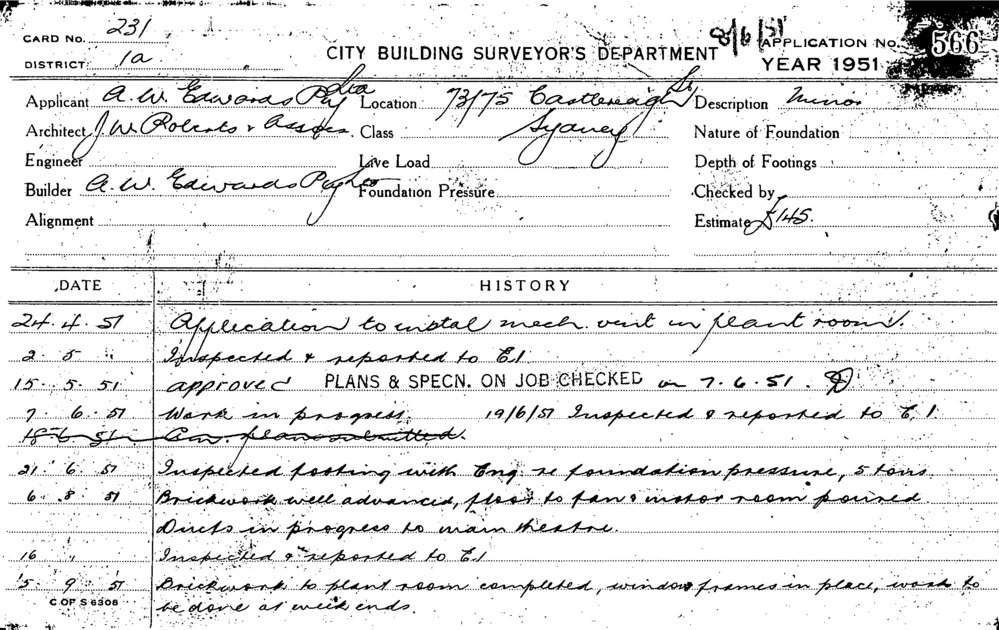 CARD No. 231
8/6/51
APPLICATION No. 566
DISTRICT 1a
CITY BUILDING SURVEYOR'S DEPARTMENT
YEAR 1951
Applicant A. W. Edwards Pty Ltd Location 73/75 Castlereagh St, Description Minor
Architect J W Roberts & Assoc. Class Sydney Nature of Foundation
Engineer Live Load Depth of Footings
Builder A. W. Edwards Pty Ltd Foundation Pressure Checked by
Alignment Estimate £145.
DATE HISTORY
24. 4. 51 Application to instal mech. vent in plant room.
2. 5 " Inspected & reported to E1
15. 5. 51 approved PLANS & SPECN. ON JOB CHECKED on 7.6.51.
7. 6. 51 Work in progress. 19/6/51 Inspected & reported to E1
18 6 51 plans submitted.
21. 6. 51 Inspected footing with Eng. re foundation pressure, 5 tons
6. 8 51 Brickwork well advanced, floor to fan & motor room poured.
Ducts in progress to main theatre.
16 " Inspected & reported to E1
5 9 51 Brickwork to plant room completed, window frames in place, work to
C OF S 6308
be done at week ends.